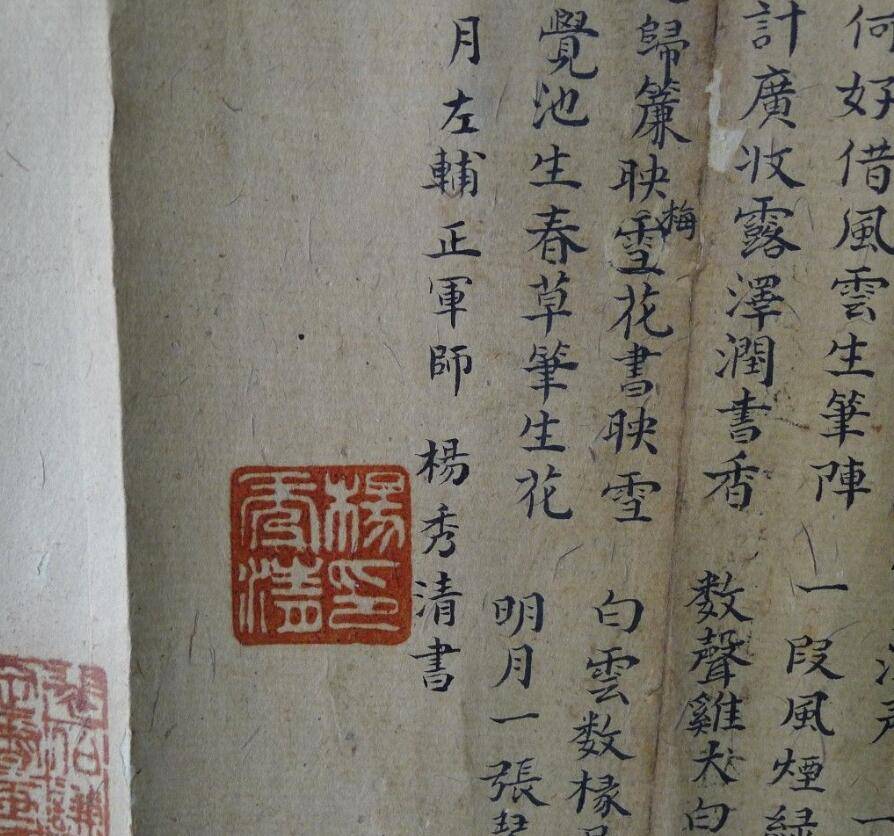 何好借風雲生筆陣 一段風煙緑
計廣收露澤潤書香 数聲雞犬白
歸簾映雪花書映雪 白雲数椽
梅
覺池生春草筆生花 明月一張琴
月左輔正軍師 楊秀清書
楊印
秀清